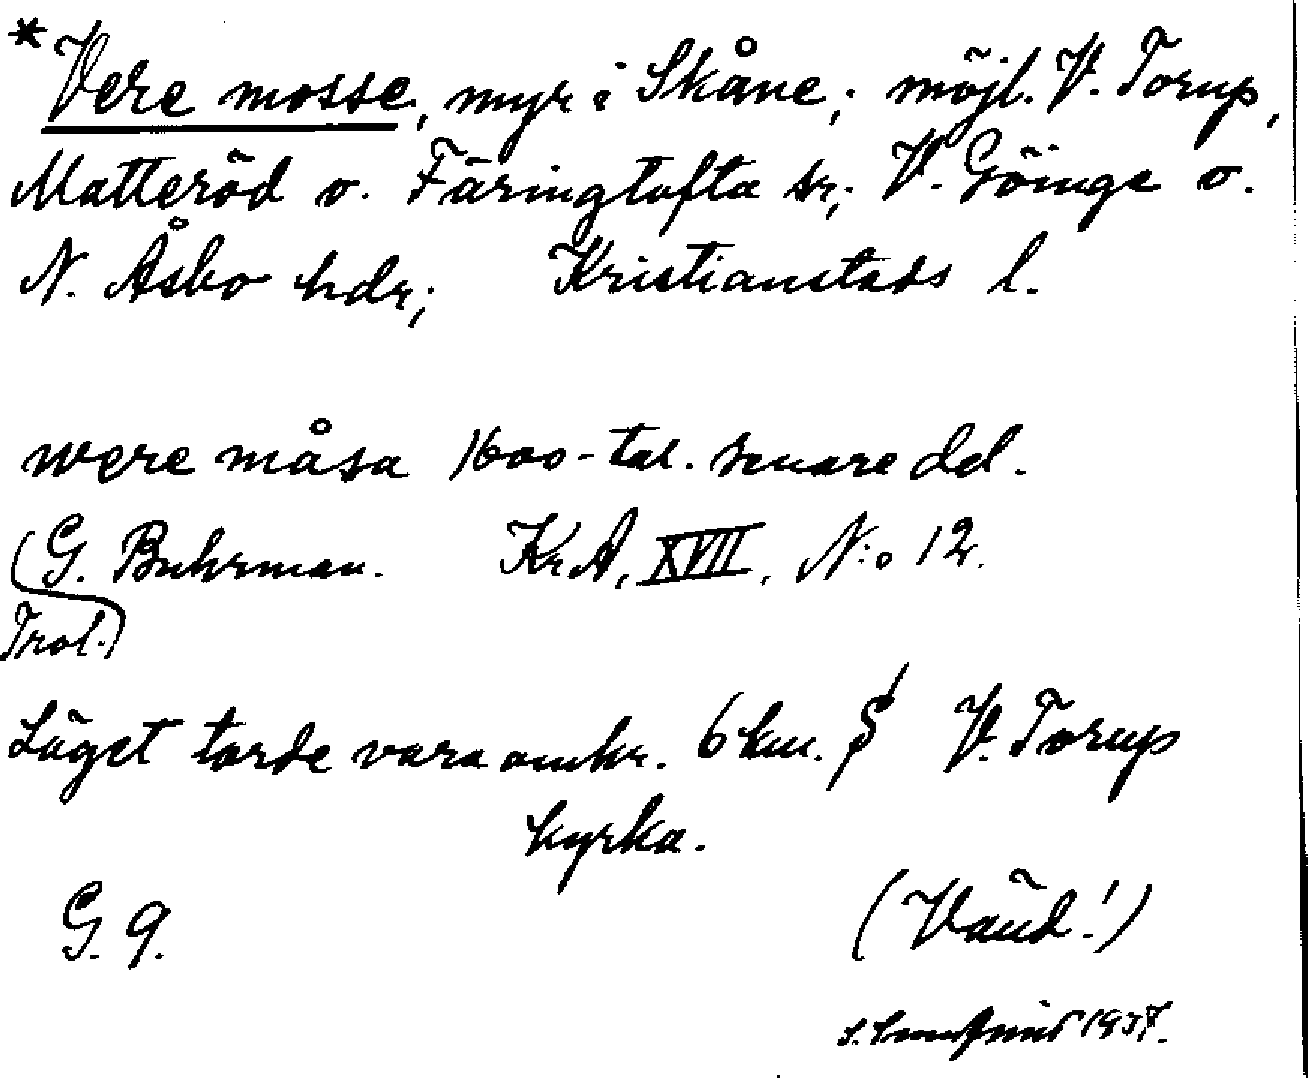 *Vere mosse, myr i Skåne; möjl. V. Torup,
Matteröd o. Färingtofta sn; V. Göinge o.
N. Åsbo hdr; Kristianstads l.
were måsa 1600-tal. senare del.
(G. Buhrman. KrA, XVII, N:o 12.
Trol.)
Läget torde vara omkr. 6 km. S V. Torup
kyrka.
G. 9.
(Vänd!)
1937.